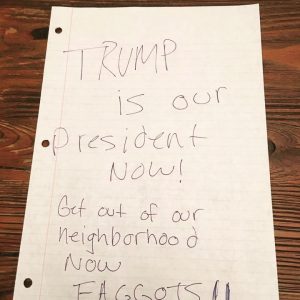 TRUMP
is our
president
NOW!
Get out of our
neighborhood
NOW
FAGGOTS!!